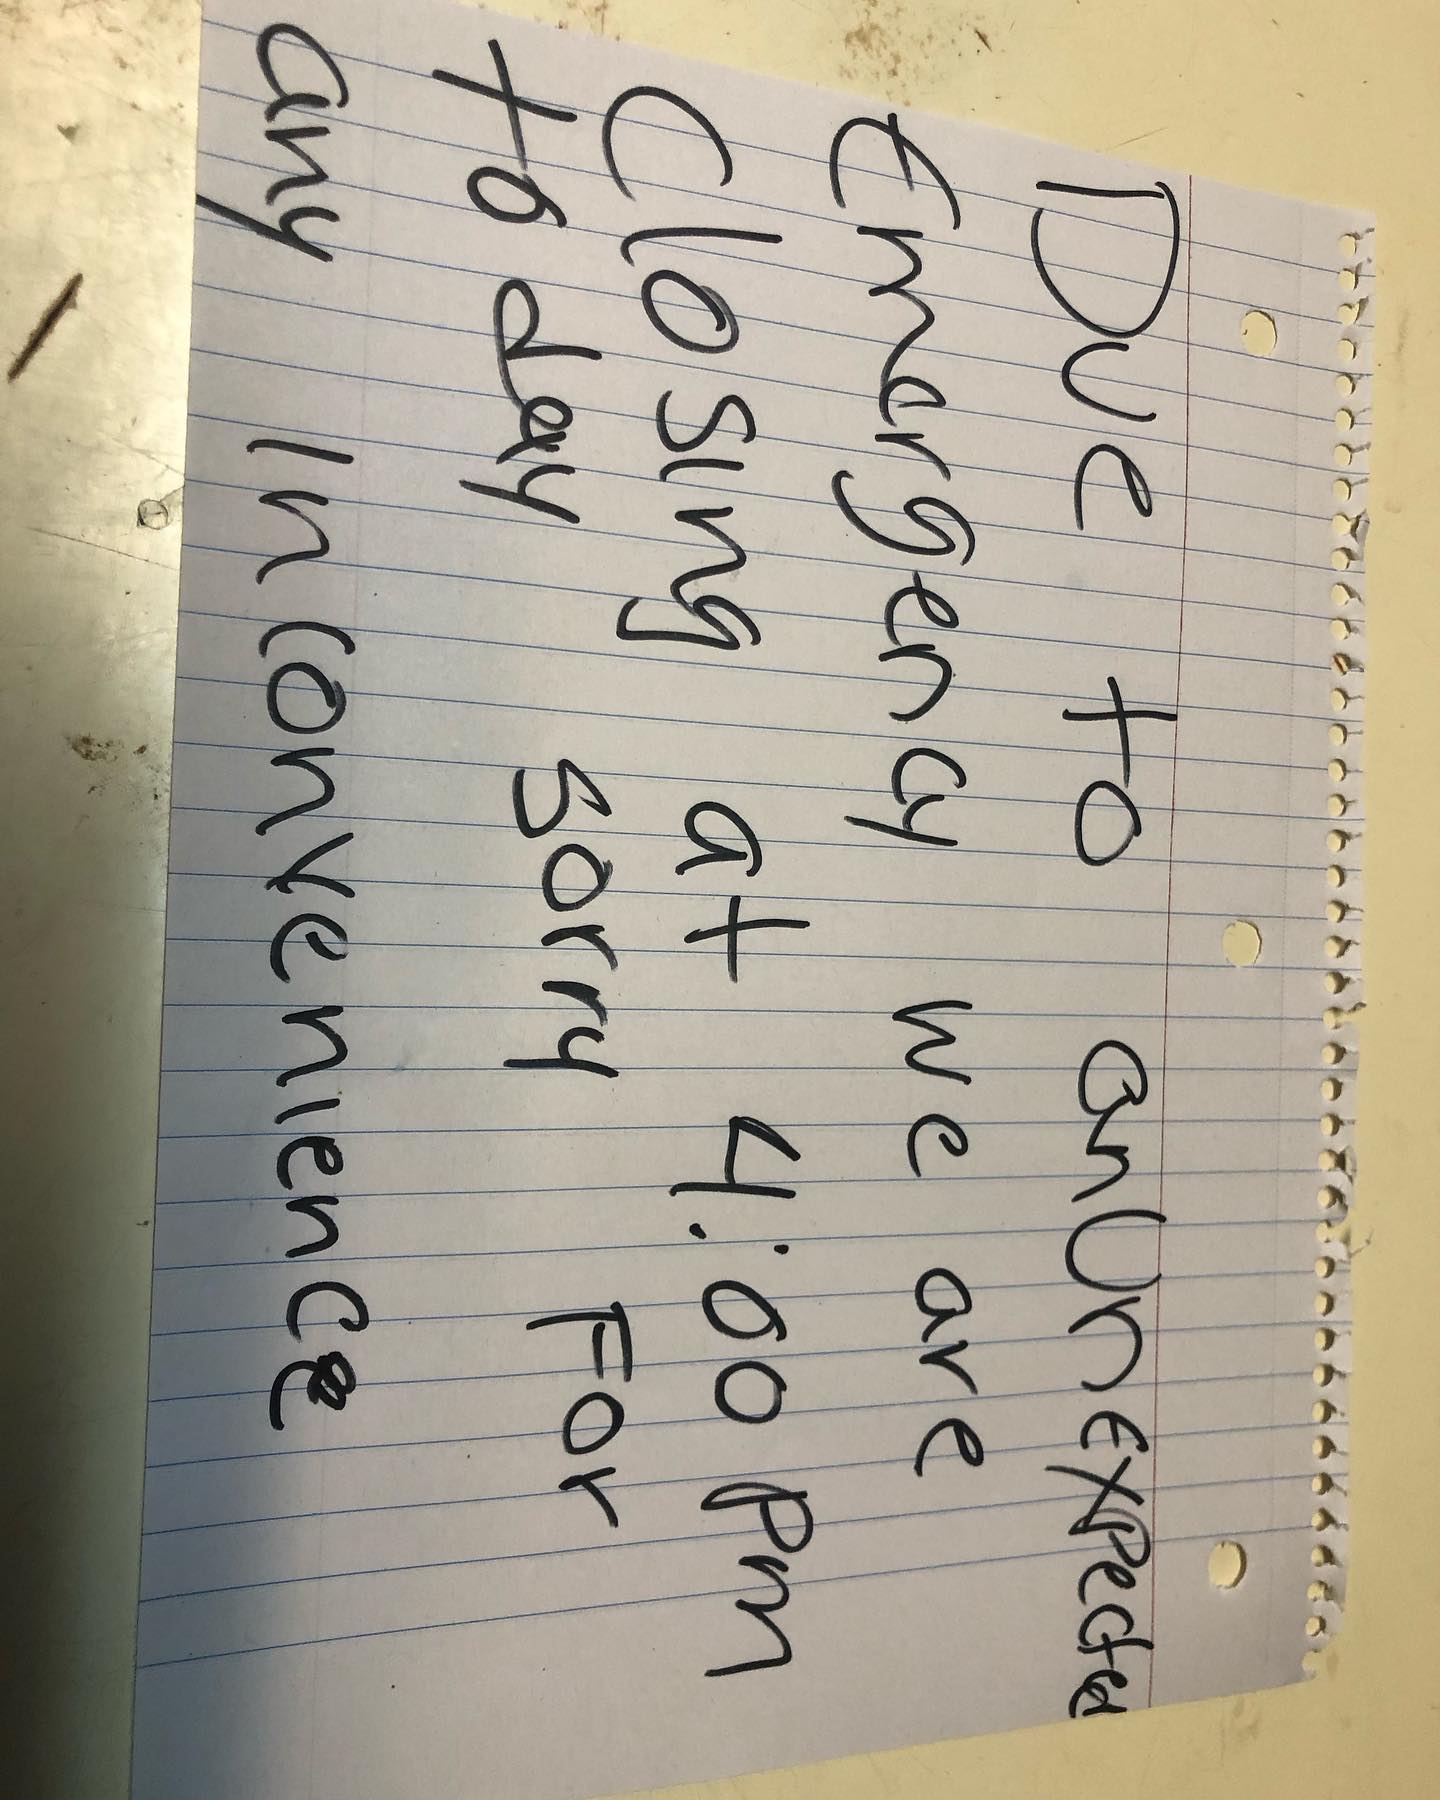 Due to an Unexpected
Emergency we are
Closing at 4:00 Pm
today Sorry For
any Inconvenience